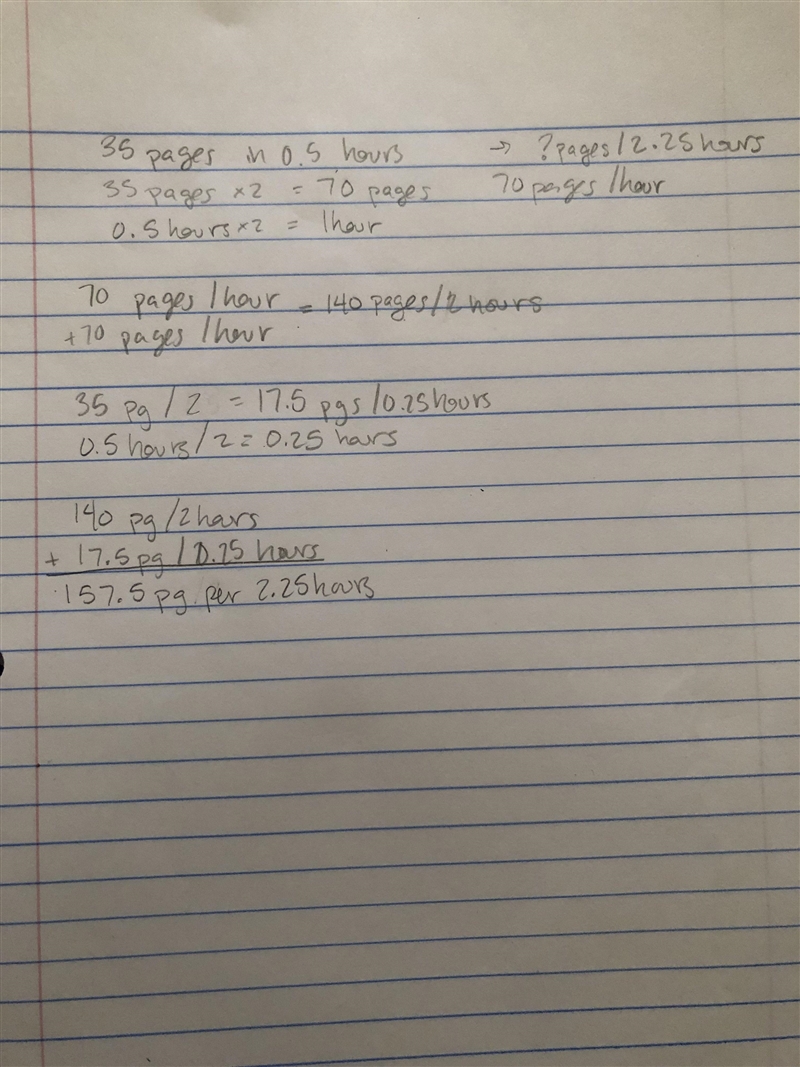 35 pages in 0.5 hours → ? pages / 2.25 hours
35 pages ×2 = 70 pages 70 pages / hour
0.5 hours ×2 = 1 hour
70 pages / hour = 140 pages / 2 hours
+70 pages / hour
35 pg / 2 = 17.5 pgs / 0.25 hours
0.5 hours / 2 = 0.25 hours
140 pg / 2 hours
+ 17.5 pg / 0.25 hours
157.5 pg per 2.25 hours